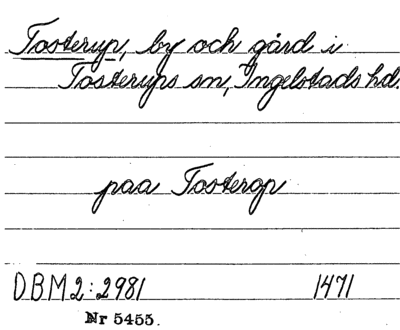 Tosterup, by och gård i
Tosterups sn, Ingelstads hd.
paa Tosterop
DBM2:2981 1471
Nr 5455.